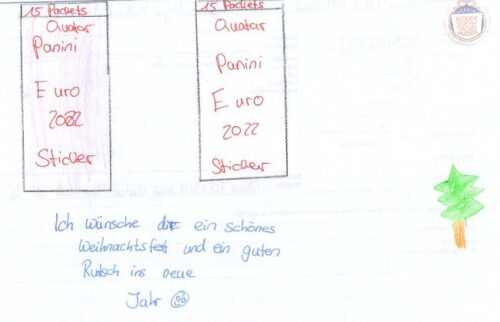 15 Packets
Quatar
Panini
Euro
2022
Sticker
15 Packets
Quatar
Panini
Euro
2022
Sticker
Ich wünsche dir ein schönes
Weihnachtsfest und ein guten
Rutsch ins neue
Jahr